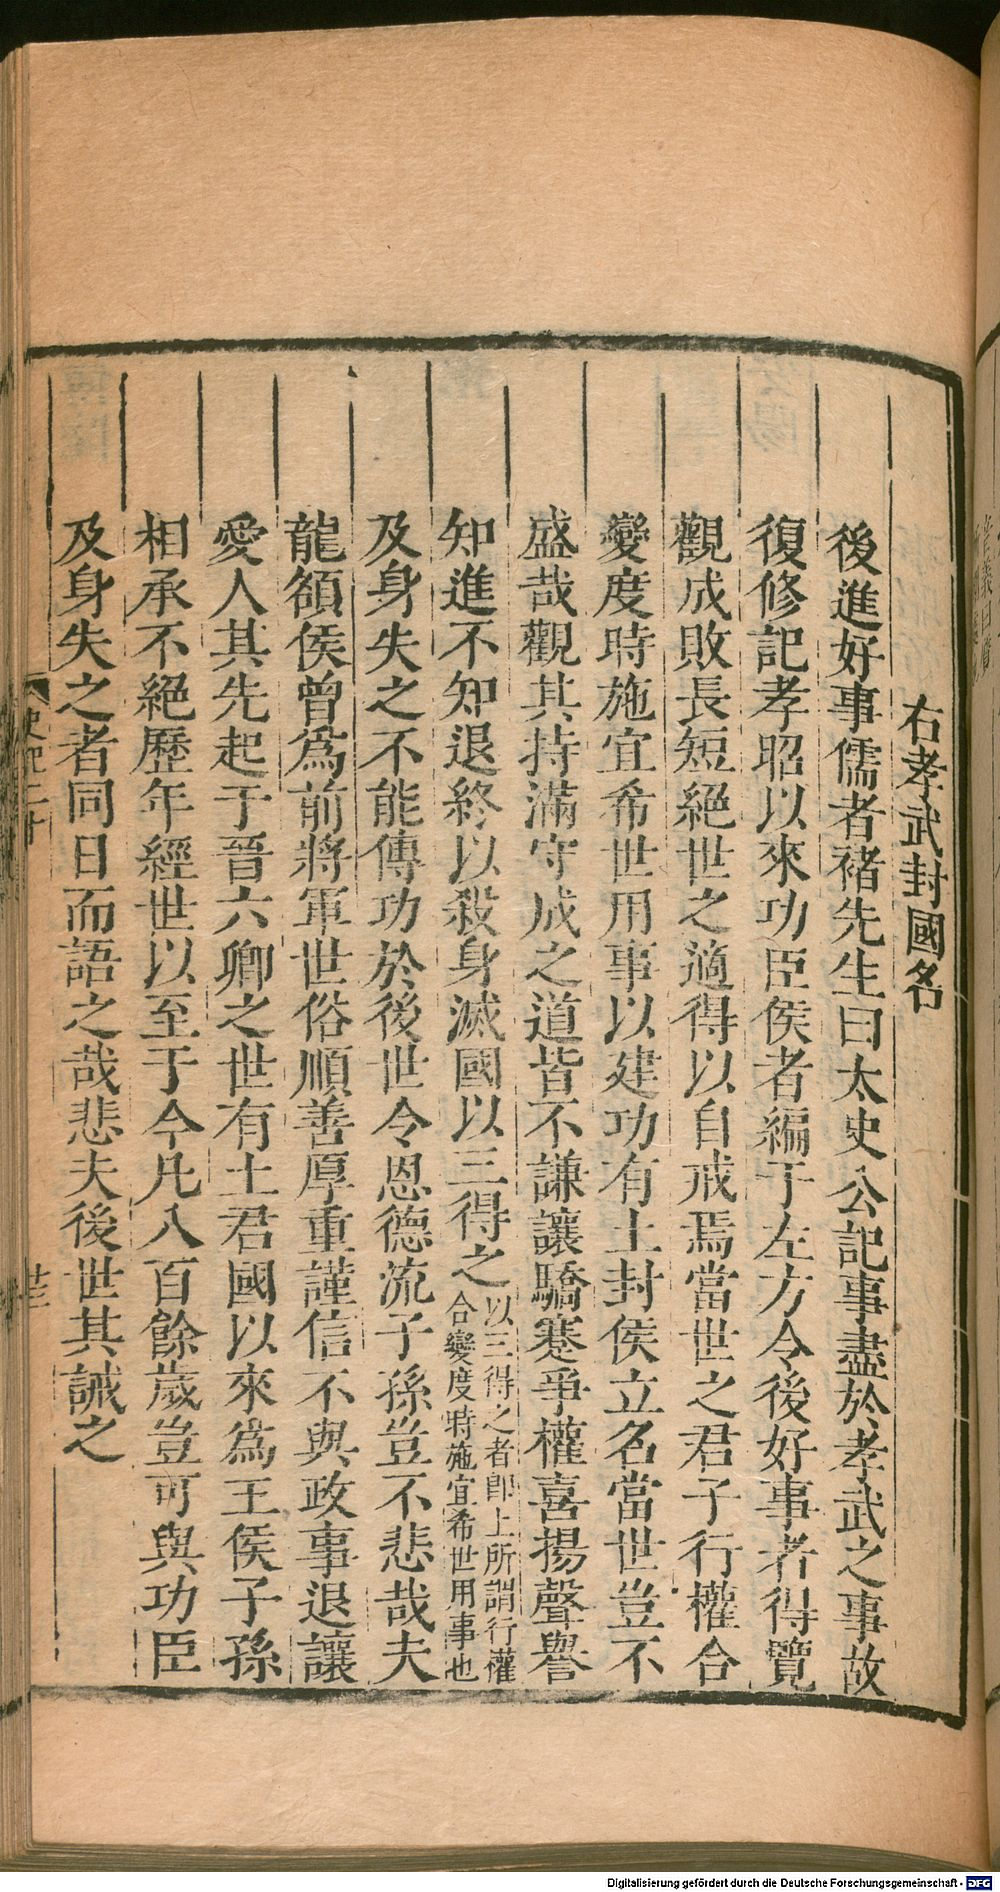 右孝武封國名
後進好事儒者褚先生曰太史公記事盡於孝武之事故
復修記孝昭以來功臣侯者編于左方令後好事者得覽
觀成敗長短絕世之適得以自戒焉當世之君子行權合
變度時施宜希世用事以建功有土封侯立名當世豈不
盛哉觀其持滿守成之道皆不謙讓驕蹇爭權喜揚聲譽
知進不知退終以殺身滅國以三得之
以三得之者即上所謂行權
合變度時施宜希世用事也
及身失之不能傳功於後世令恩德流子孫豈不悲哉夫
龍頟侯曾爲前將軍世俗順善厚重謹信不與政事退讓
愛人其先起于晉六卿之世有土君國以來爲王侯子孫
相承不絕歷年經世以至于今凡八百餘歲豈可與功臣
及身失之者同日而語之哉悲夫後世其誡之
史記二十
廿三
Digitalisierung gefördert durch die Deutsche Forschungsgemeinschaft - DFG